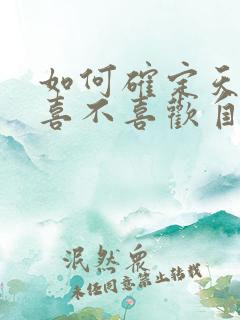 如何確定天
喜不喜歡自
泯然眾
未任同意禁止转载